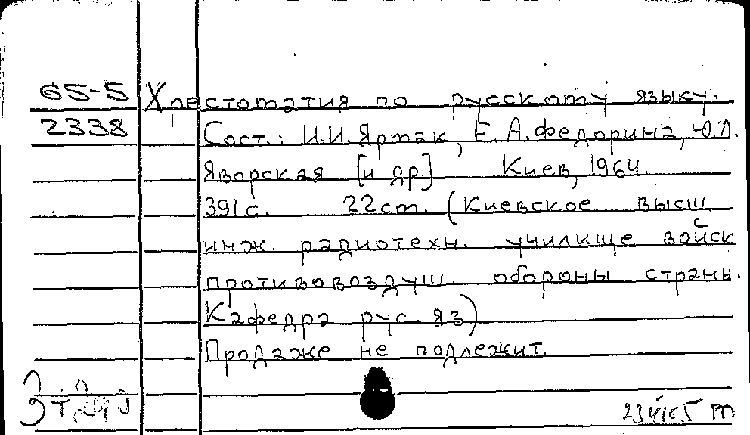 65-5 Хрестоматия по русскому языку.
2338 Сост.: И.И. Ярмак, Е.А. Федорина, Ю.Л.
Яворская [и др] Киев, 1964.
391с. 22см. (Киевское высш
инж. радиотехн. училище войск
противовоздуш. обороны страны.
Кафедра рус. яз)
Продаже не подлежит.